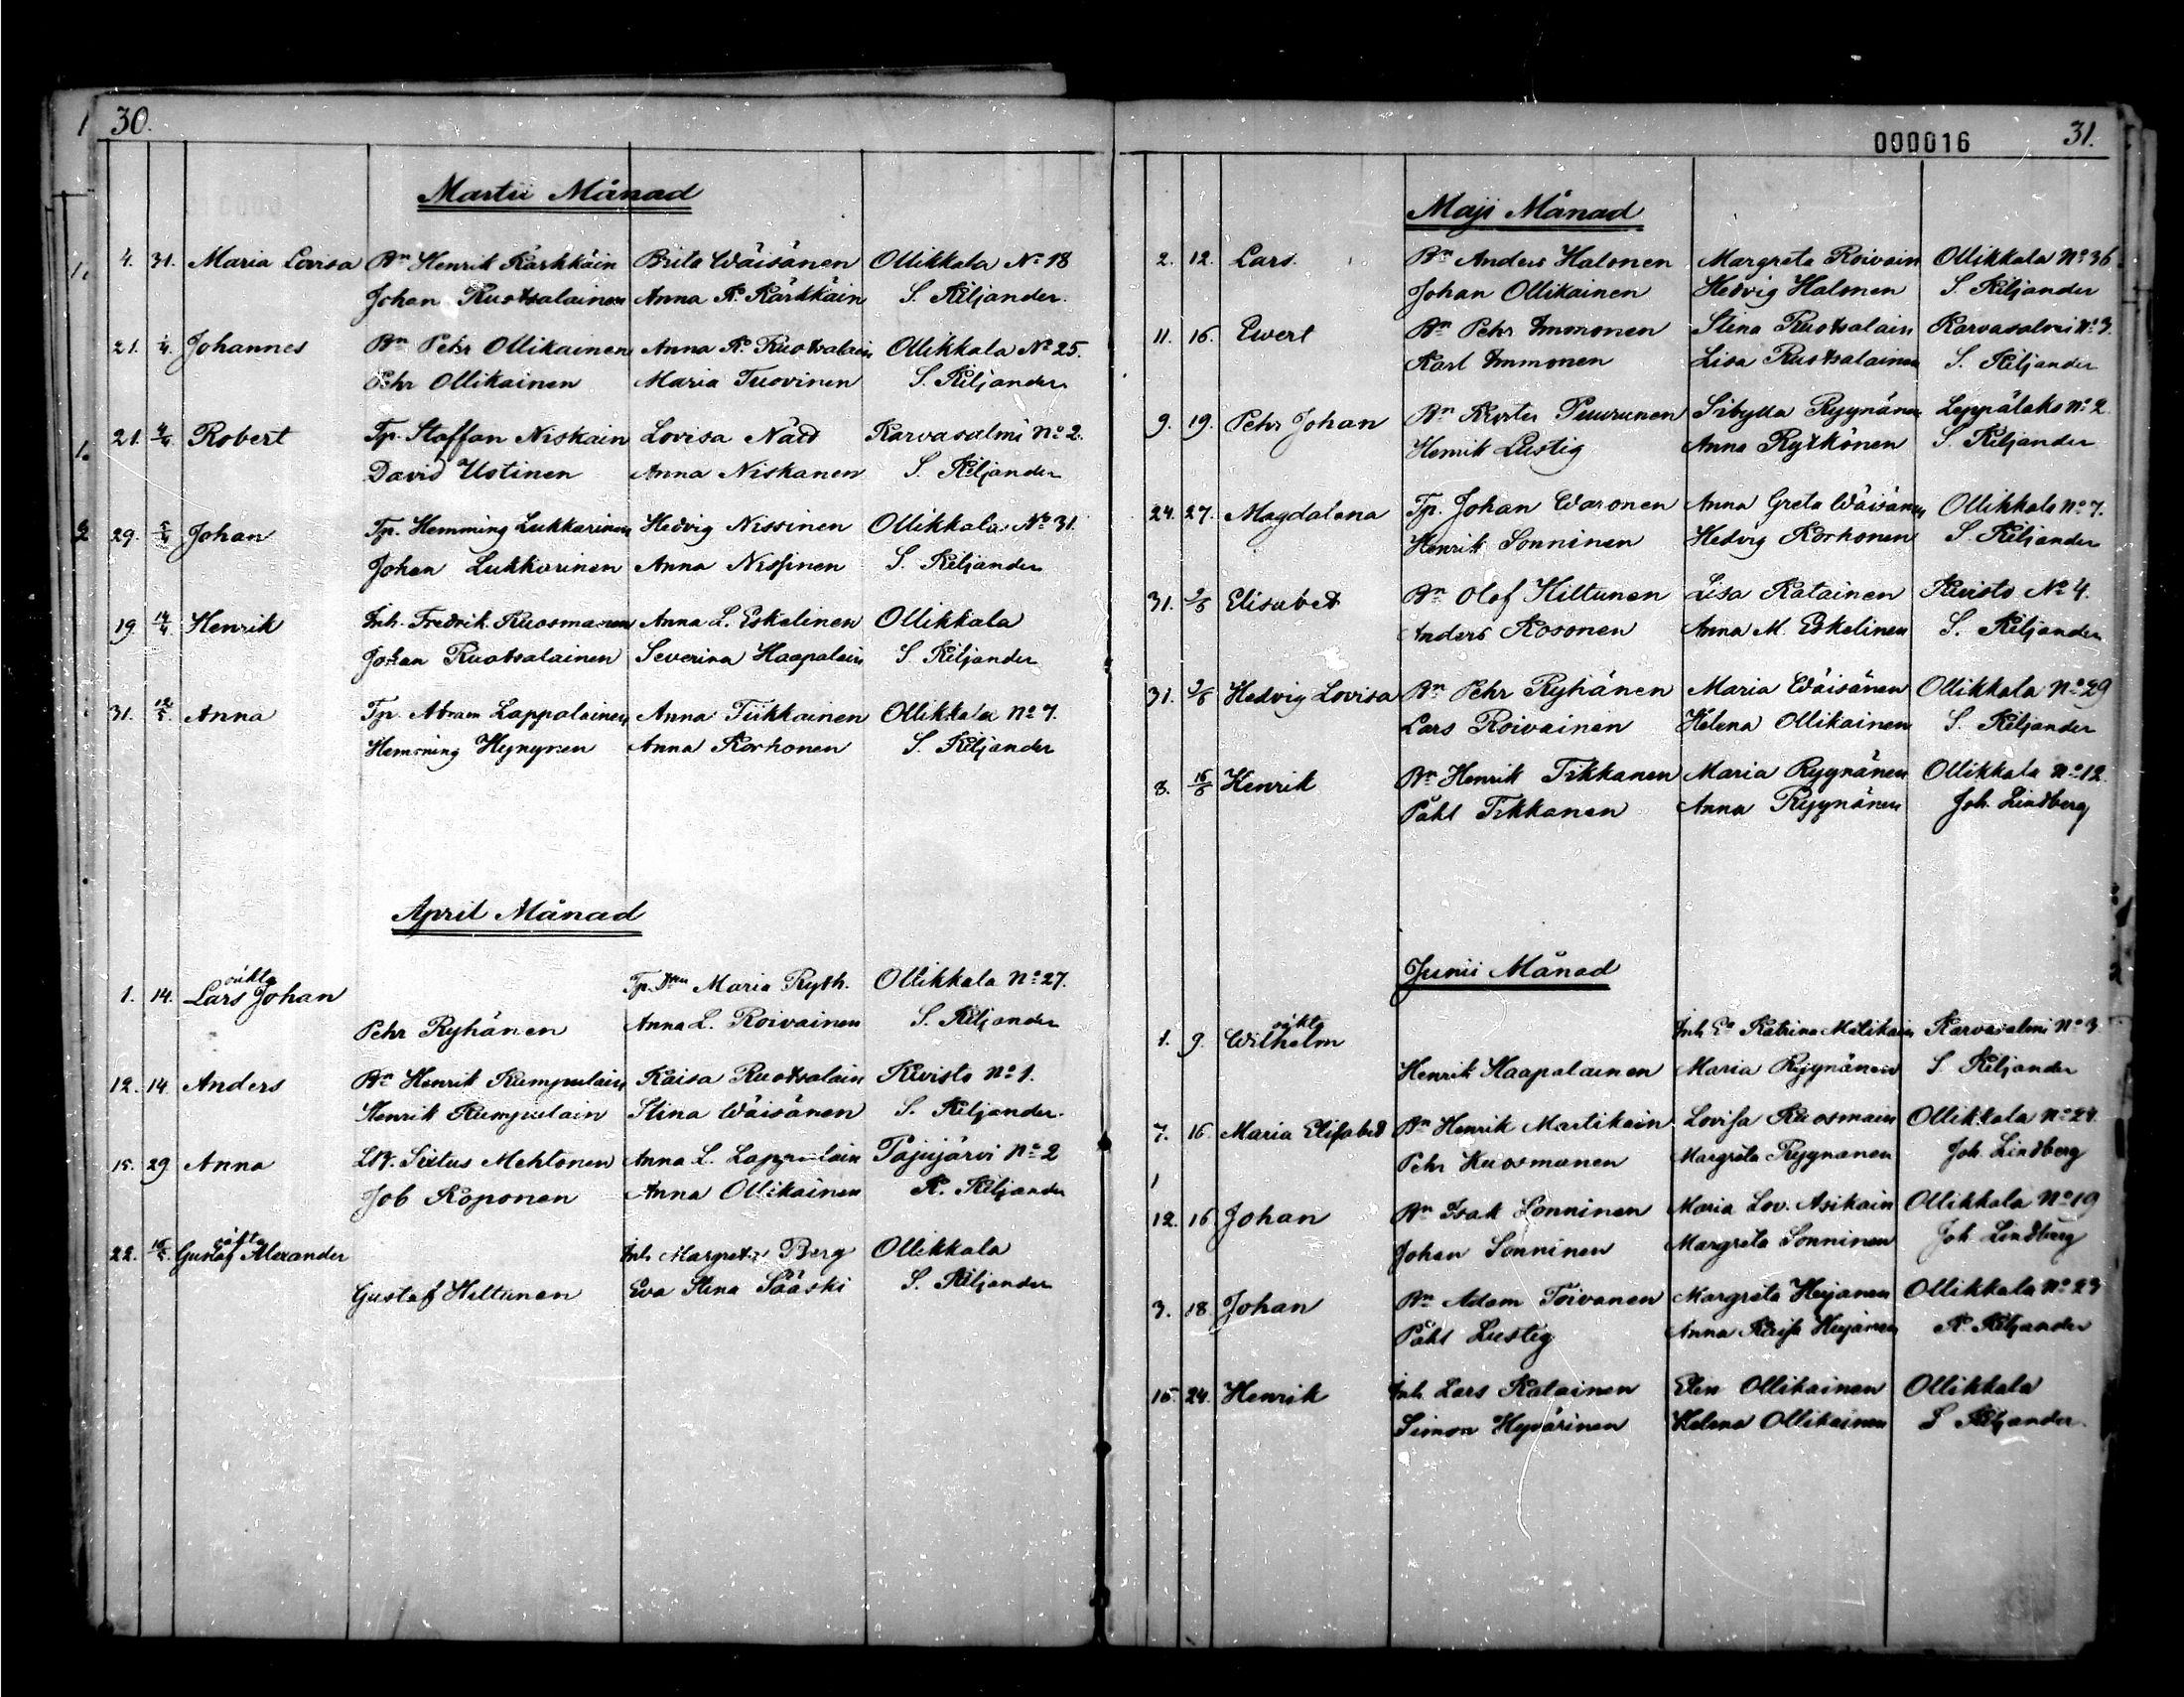 30.
Martii Månad
4. 31. Maria Lovisa Bn Henrik Kärkkäin Brita Wäisänen Ollikkala No 18
Johan Ruotsalainen Anna K. Kärkkäin S. Kiljander.
21. 1/4. Johannes Bn Pehr Ollikainen Anna K. Ruotsalain Ollikkala No 25.
Pehr Ollikainen Maria Tuovinen S. Kiljander
21. 4/4 Robert Tp. Staffan Niskain Lovisa Näts Karvasalmi No 2.
David Ustinen Anna Niskanen S. Kiljander
29. 5/4 Johan Tp. Hemming Lukkarinen Hedvig Nissinen Ollikkala No 31.
Johan Lukkarinen Anna Nissinen S. Kiljander
19 14/4. Henrik Inh. Fredrik Kuosmanen Anna L. Eskelinen Ollikkala
Johan Ruotsalainen Severina Haapalain S. Kiljander
31. 12/5. Anna Tp. Abram Lappalainen Anna Tiikkainen Ollikkala No 7.
Hemming Heynynen Anna Korhonen S. Kiljander
April Månad
oäkta
1. 14. Lars Johan Tp. Maria Ryth. Ollikkala No 27.
Pehr Ryhänen Anna L. Roivainen S. Kiljander
12. 14 Anders Bn Henrik Kumpulain Kaisa Ruotsalain Kivisto No 1.
Henrik Kumpulain Stina Wäisänen S. Kiljander.
15. 29 Anna Sixtus Mehtonen Anna L. Lappalain Pajujärvi No 2
Job Koponen Anna Ollikainen K. Kiljander
oäkta
22. Gustaf Alexander Inh Margreta Berg Ollikkala
Gustaf Hiltunen Eva Stina Sääski S. Kiljander
000016 31.
Maji Månad
2. 12. Lars Bn Anders Halonen Margreta Roivain Ollikkala No 36
Johan Ollikainen Hedvig Halonen S. Kiljander
11. 16. Ewert Bn Pehr Immonen Stina Ruotsalain Karvasalmi No 3.
Karl Immonen Lisa Ruotsalainen S. Kiljander
9. 19. Pehr Johan Bn Puurunen Sibylla Ryynänen Leppälaks No 2
Henrik Lustig Anna Rytkönen S. Kiljander
24. 27. Magdalena Tp. Johan Waronen Anna Greta Wäisänen Ollikkala No 7.
Henrik Sonninen Hedvig Korhonen S. Kiljander
31. 2/6 Elisabet Bn Olof Hiltunen Lisa Katainen Kuisto No 4.
Anders Kosonen Anna M. Eskelinen S. Kiljander
31. 2/6 Hedvig Lovisa Bn Pehr Ryhänen Maria Wäisänen Ollikkala No 29
Lars Roivainen Helena Ollikainen S. Kiljander
8. 16/6 Henrik Bn Henrik Tikkanen Maria Ryynänen Ollikkala No 12.
Påhl Tikkanen Anna Ryynänen Joh. Lindberg
Junii Månad
oäkta
1. 9. Wilhelm Inh Ea Katrina Mälikain Karvasalmi No 3.
Henrik Haapalainen Maria Ryynänen S. Kiljander
7. 16. Maria Elisabet Bn Henrik Martikain Lovisa Kuosmain Ollikkala No 24.
Pehr Kuosmanen Margreta Ryynänen Joh. Lindberg
12. 16 Johan Bn Isak Sonninen Maria Lov. Asikain Ollikkala No 19
Johan Sonninen Margreta Sonninen Joh. Lindberg
3. 18. Johan Bn Adam Toivanen Margreta Heijanen Ollikkala No 23
Påhl Lustig Anna Kaisa Heijanen K. Kiljander
15. 24. Henrik Inh. Lars Katainen Elin Ollikainen Ollikkala
Simon Hyvärinen Helena Ollikainen S Kiljander.